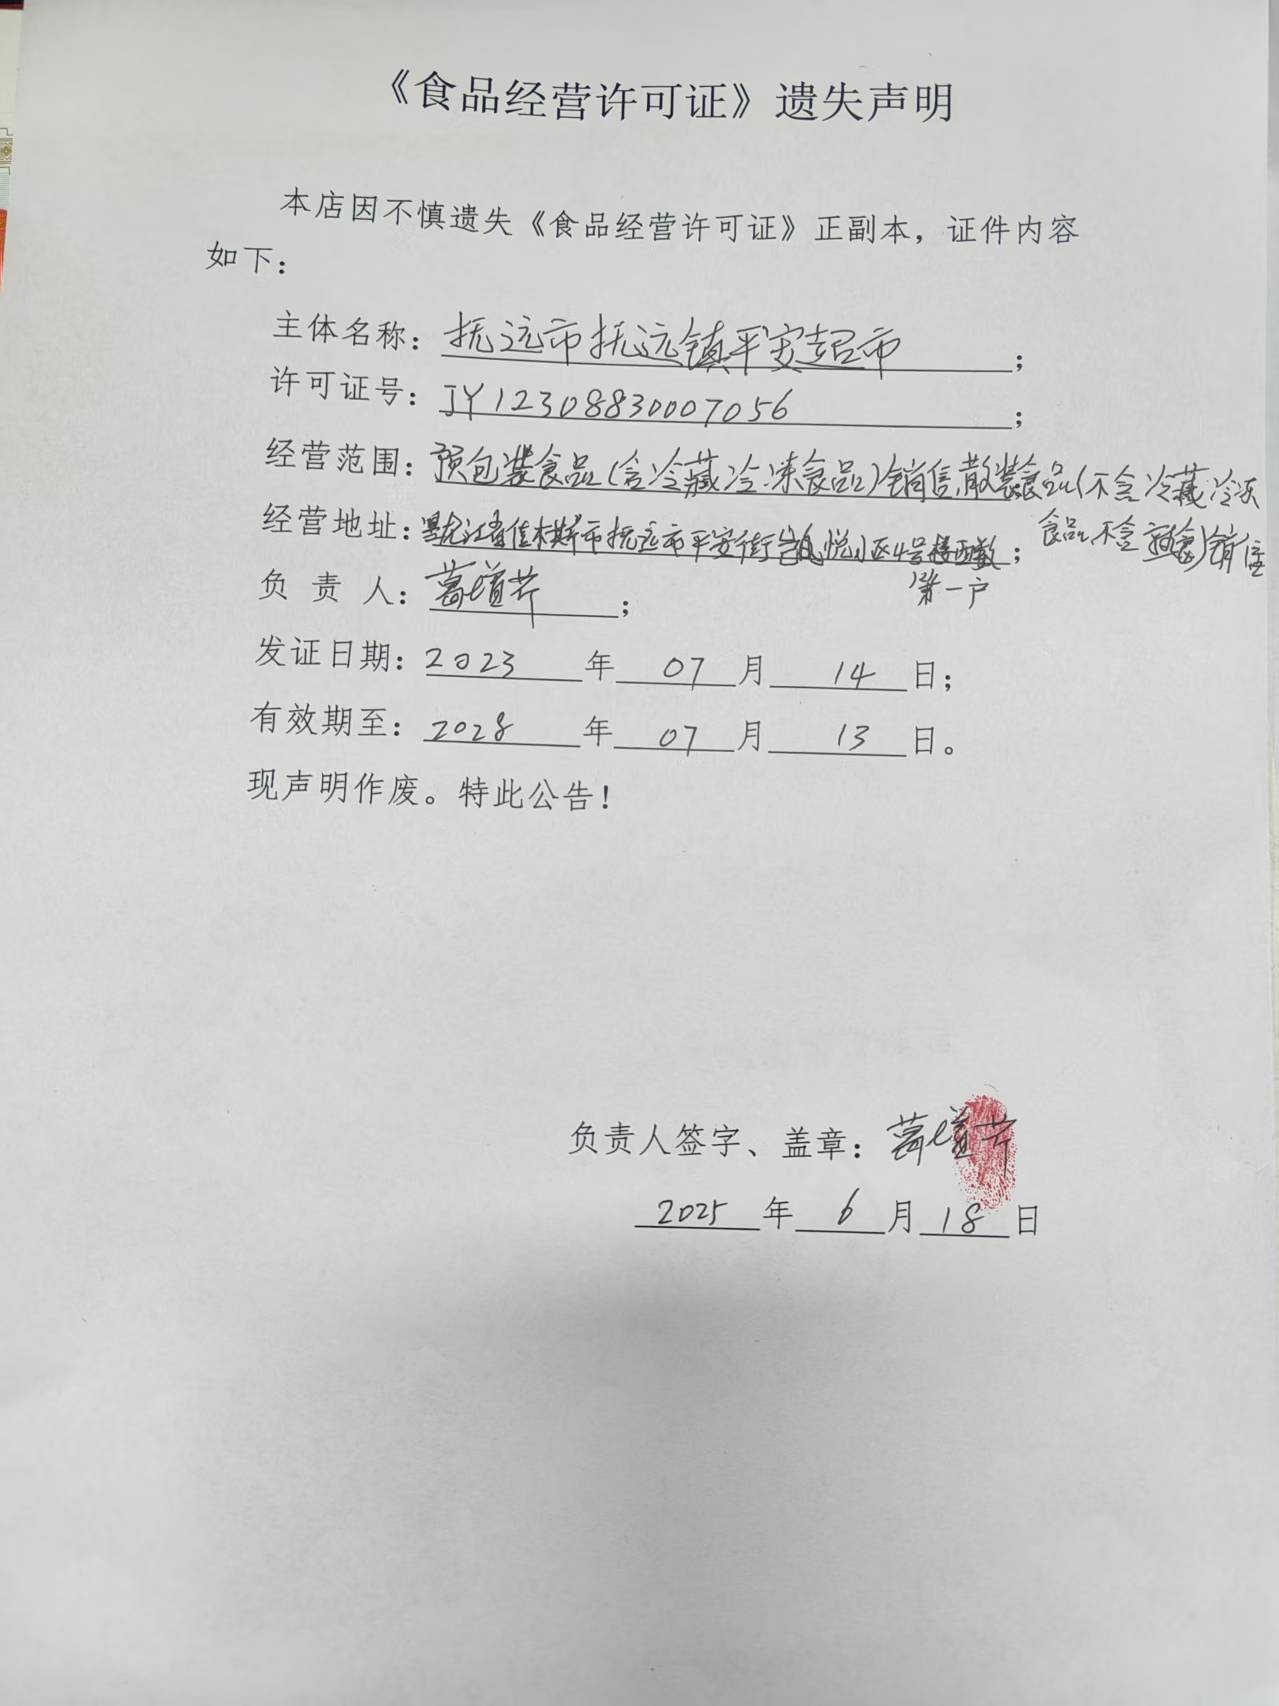 《食品经营许可证》遗失声明
本店因不慎遗失《食品经营许可证》正副本，证件内容
如下：
主体名称：抚远市抚远镇平安超市；
许可证号：JY12308830007056；
经营范围：预包装食品(含冷藏冷冻食品)销售,散装食品(不含冷藏冷冻
食品,不含熟食)销售
经营地址：黑龙江省佳木斯市抚远市平安街凯悦小区4号楼西数；
第一户
负责人：葛道芹；
发证日期：2023年07月14日；
有效期至：2028年07月13日。
现声明作废。特此公告！
负责人签字、盖章：葛道芹
2025年6月18日